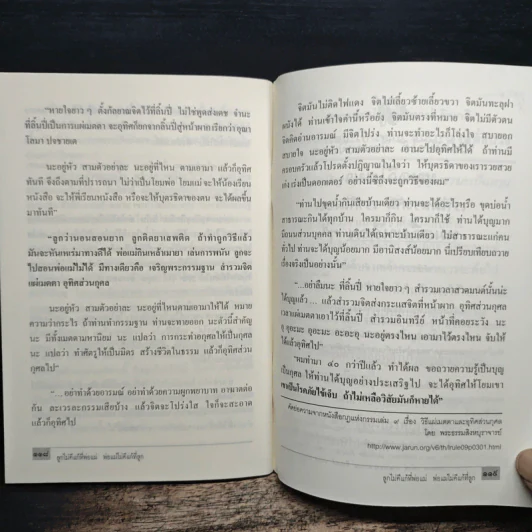 “หายใจยาว ๆ ตั้งกัลยาณจิตไว้ที่ลิ้นปี่ ไม่ใช่พูดส่งเดช จำนะ
ที่ลิ้นปี่เป็นการแผ่เมตตา จะอุทิศก็ยกจากลิ้นปี่สู่หน้าผาก เรียกว่า อุณา
โลมา ปจชายเต
นะอยู่หัว สามตัวอย่าละ นะอยู่ที่ไหน ตามเอามา แล้วก็อุทิศ
ทันที จึงถึงตามที่ปรารถนา ไม่ว่าเป็นโยมพ่อ โยมแม่ จะให้น้องเรียน
หนังสือ จะให้พี่เรียนหนังสือ หรือจะให้บุตรธิดาของตน จะได้ผลขึ้น
มาทันที”
“ลูกว่านอนสอนยาก ลูกติดยาเสพติด ถ้าทำถูกวิธีแล้ว
มันจะหันเหเร่มาทางดีได้ พ่อแม่กินเหล้าเมายา เล่นการพนัน ลูกจะ
ไปสอนพ่อแม่ไม่ได้ มีทางเดียวคือ เจริญพระกรรมฐาน สำรวมจิต
แผ่เมตตา อุทิศส่วนกุศล
นะอยู่หัว สามตัวอย่าละ นะอยู่ที่ไหนตามเอามาให้ได้ หมาย
ความว่ากระไร ถ้าท่านทำกรรมฐาน ท่านจะทายออก นะตัวนี้สำคัญ
นะ มีทั้งเมตตามหานิยม นะ แปลว่า การกระทำอกุศลให้เป็นกุศล
นะ แปลว่า ทำศัตรูให้เป็นมิตร สร้างชีวิตในธรรม แล้วก็อุทิศส่วน
กุศลไป”
“ ...อย่าทำด้วยอารมณ์ อย่าทำด้วยความผูกพยาบาท อาฆาตต่อ
กัน ละเวรละกรรมเสียบ้าง แล้วจิตจะโปร่งใส ใจก็จะสะอาด
แล้วก็อุทิศไป
๑๑๘ ลูกไม่ดีแก้ที่พ่อแม่ พ่อแม่ไม่ดีแก้ที่ลูก
จิตมันไม่ติดไฟแดง จิตไม่เลี้ยวซ้ายเลี้ยวขวา จิตมันทะลุฝา
ผนังได้ ท่านเข้าใจคำนี้หรือยัง จิตมันตรงที่หมาย จิตไม่มีตัวตน
จิตคิดอ่านอารมณ์ มีจิตโปร่ง ท่านจะทำอะไรก็โล่งใจ สบายอก
สบายใจ นะอยู่หัว สามตัวอย่าละ เอานะไปอุทิศให้ได้ ถ้าท่านมี
ครอบครัวแล้วโปรดตั้งปฏิญาณในใจว่า ให้บุตรธิดาของเรารวยสวย
เก่ง เร่งเป็นดอกเตอร์ อย่างนี้ซิถึงจะถูกวิธีของผม”
“ท่านไปขุดน้ำกินเสียบ้านเดียว ท่านจะได้อะไรหรือ ขุดบ่อน้ำ
สาธารณะกินได้ทุกบ้าน ใครมาก็กิน ใครมาก็ใช้ ท่านได้บุญมาก
ถนนส่วนบุคคล ท่านเดินได้เฉพาะบ้านเดียว ไม่สาธารณะแก่คน
ทั่วไป ท่านจะได้บุญน้อยมาก มีอานิสงส์น้อยมาก นี่เปรียบเทียบถวาย
เรื่องจริงเป็นอย่างนั้น”
“...อย่าลืมนะ ที่ลิ้นปี่ หายใจยาว ๆ สำรวมเวลาสวดมนต์นั้นน่ะ
ได้บุญแล้ว ... แล้วสำรวมจิตส่งกระแสจิตที่หน้าผาก อุทิศส่วนกุศล
เวลาแผ่เมตตาเอาไว้ที่ลิ้นปี่ สำรวมอินทรีย์ หน้าที่คอยระวัง นะ
อยู่ตรงไหน เอามาไว้ตรงไหน จึงให้
ได้”
“ผมทำมา ๔๐ กว่าปีแล้ว ทำได้ผล ขอถวายความรู้เป็นบุญ
เป็นกุศล ให้ท่านได้บุญอย่างประเสริฐไป จะได้อุทิศให้โยมเขา
เขาเป็นโรคภัยไข้เจ็บ ถ้าไม่เหลือวิสัยมันก็หายได้”
คัดข้อความจากหนังสือกฎแห่งกรรมเล่ม ๙ เรื่อง วิธีแผ่เมตตาและอุทิศส่วนกุศล
โดย พระธรรมสิงหบุราจารย์
http://www.jarun.org/v6/th/lrule09p0301.html
ลูกไม่ดีแก้ที่พ่อแม่ พ่อแม่ไม่ดีแก้ที่ลูก ๑๑๙